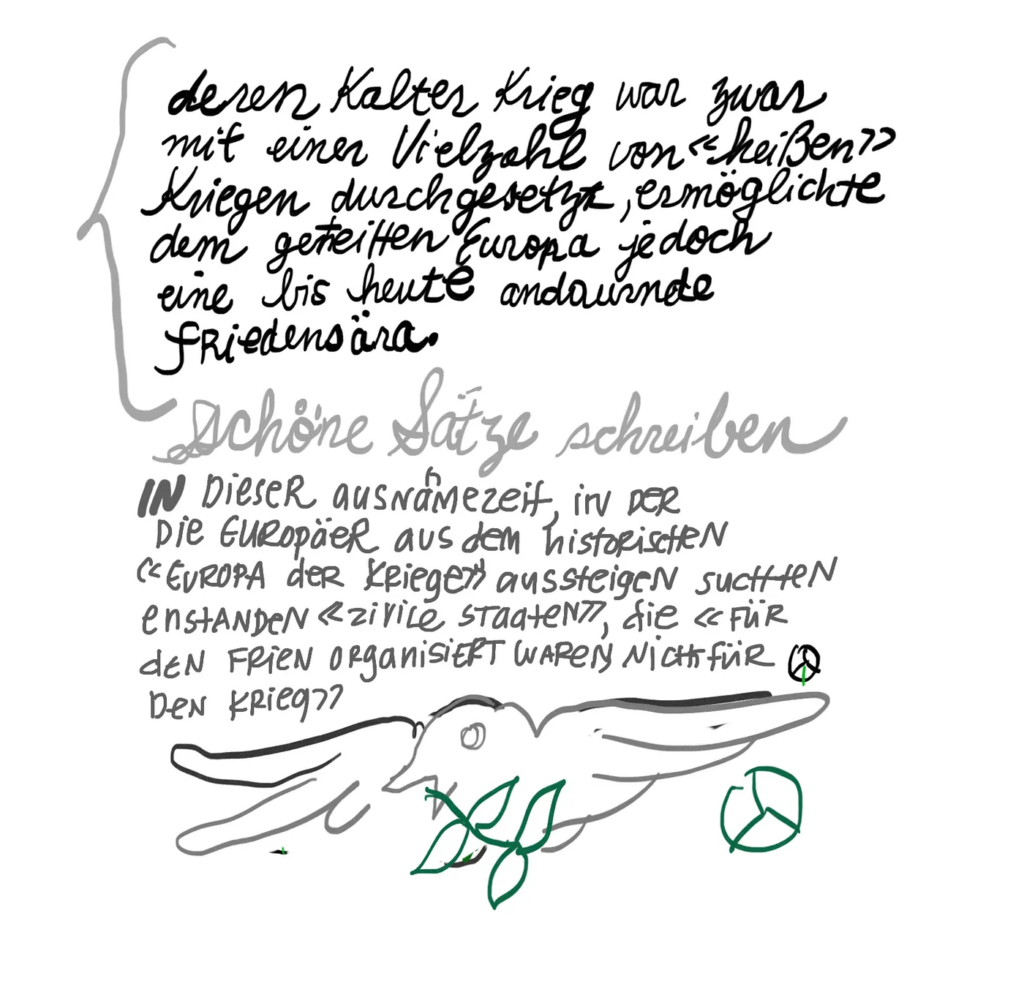 deren Kalter Krieg war zwar
mit einer Vielzahl von «heißen»
Kriegen durchgesetzt, ermöglichte
dem geteilten Europa jedoch
eine bis heute andaurnde
Friedensära.
Schöne Sätze schreiben
IN DieseR ausNahmezeit, in DER
Die EUROpäER aus dem historischen
«EUROPA der Kriege» aussteigen suchten
enstANDEN «zivile Staaten», die «FÜR
deN FRIEN organisiERT WAREN Nicht FÜR
Den KRieg»